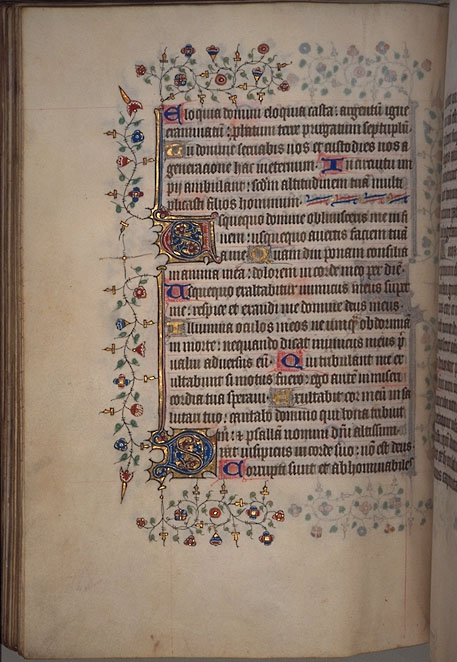 Eloquia domini eloquia casta: argentū igne
examinatū: ꝓbatum terre purgatum septuplū
Tu domine seruabis nos et custodies nos a
generacione hac in eternum. In circuitu im
pij ambulant: scdm altitudinem tuā multi
plicasti filios hominum.
Usquequo domine obliuisceris me in fi
nem: usquequo auertis faciem tuā
a me Quam diu ponam consilia
in anima mea: dolorem in corde meo per diē.
Usquequo exaltabitur inimicus meus super
me: respice et exaudi me domine deus meus.
Illumina oculos meos ne umq̄ obdormiā
in morte: nequando dicat inimicus meus p̄
ualui aduersus eū. Qui tribulant me ex
ultabunt si motus fuero: ego autē in miseri
cordia tua speraui. Exultabit cor meū in sa
lutari tuo: cantabo domino qui bona tribuit
michi: et psallā nomini dn̄i altissimi.
Dixit insipiens in corde suo: nō est deus
Corrupti sunt et abhominabiles